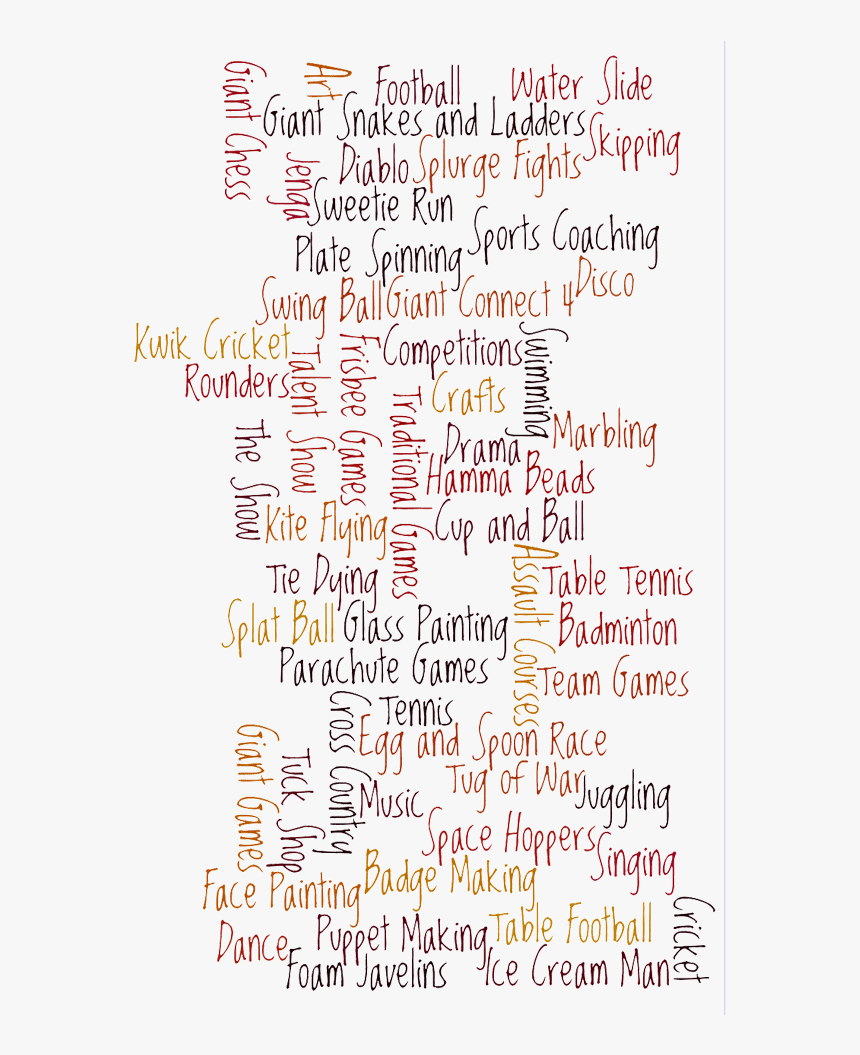 Giant Chess
Art
Football
Water Slide
Giant Snakes and Ladders
Skipping
Jenga
Diablo
Splurge Fights
Sweetie Run
Sports Coaching
Plate Spinning
Disco
Swing Ball
Giant Connect 4
Kwik Cricket
Talent Show
Frisbee Games
Competitions
Swimming
Rounders
Traditional Games
Crafts
The Show
Drama
Marbling
Hamma Beads
Kite Flying
Cup and Ball
Assault Courses
Tie Dying
Table Tennis
Splat Ball
Glass Painting
Badminton
Parachute Games
Team Games
Cross Country
Tennis
Giant Games
Tuck Shop
Egg and Spoon Race
Tug of War
Music
Juggling
Space Hoppers
Singing
Face Painting
Badge Making
Cricket
Dance
Puppet Making
Table Football
Foam Javelins
Ice Cream Man